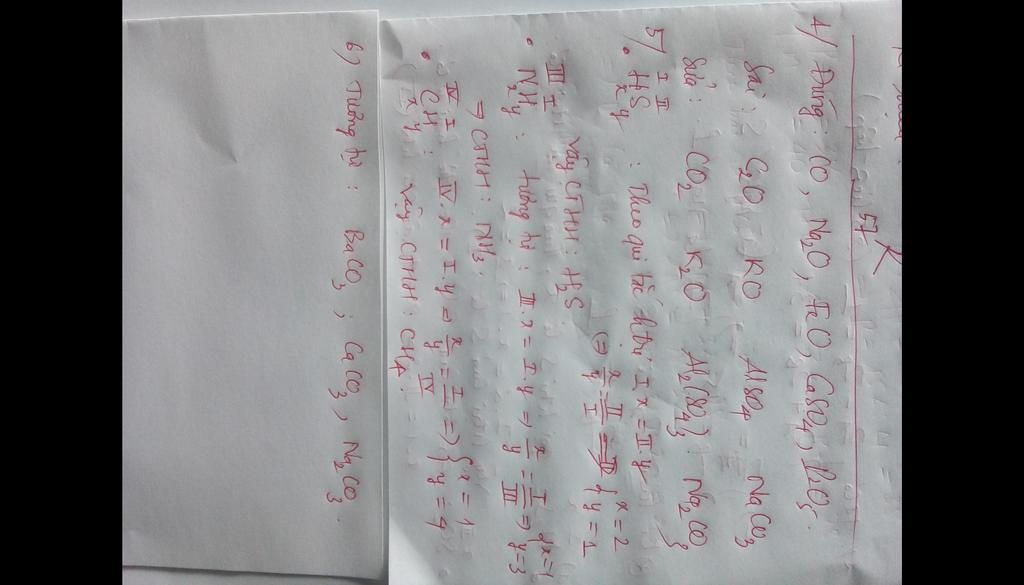 57 K
4/ Đúng: CO, Na2O, FeO, CaSO4, P2O5.
Sai: C2O KO AlSO4 NaCO3
Sửa: CO2 K2O Al2(SO4)3 Na2CO3
5/ • HxSy : Theo qui tắc htrị I.x = II.y
I II
⇒ x/y = II/I ⇒ { x = 2 y = 1
Vậy CTHH: H2S
III I
• NxHy : tương tự: III.x = I.y ⇒ x/y = I/III ⇒ { x = 1 y = 3
⇒ CTHH: NH3.
IV I
• CxHy : IV.x = I.y ⇒ x/y = I/IV ⇒ { x = 1 y = 4
Vậy CTHH: CH4.
6/ Tương tự: BaCO3; CaCO3, Na2CO3.